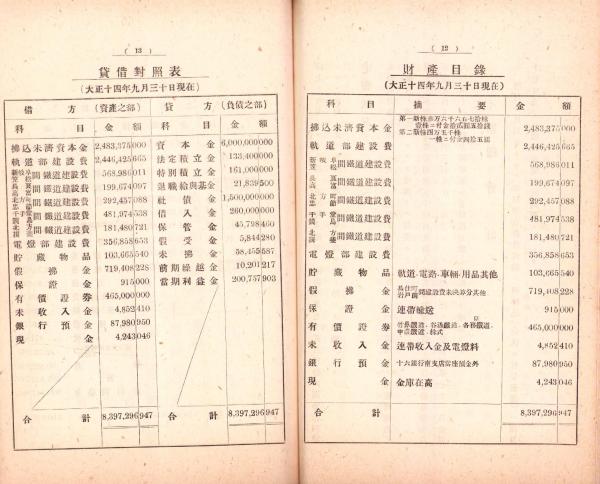 ( 12 )
財產目錄
(大正十四年九月三十日現在)
科目 摘要 金額
第一新株參万六千六百七拾株
壹株ニ付金拾貳圓五拾錢
第二新株四万五千株
一株ニ付金四拾五圓
拂込未濟資本金 2,483,375 000
軌道部建設費 2,446,425 665
間鐵道建設費 568,986 011
間鐵道建設費 199,674 097
間鐵道建設費 292,457 088
間鐵道建設費 481,974 538
間鐵道建設費 181,480 721
電燈部建設費 356,858 653
貯藏物品 軌道、電路、車輛、用品其他 103,665 540
假拂金 間建設費未決算分其他 719,408 228
保證金 連帶輸送 915 000
有價證券 465,000 000
未收入金 連帶收入金及電燈料 4,852 410
銀行預金 十六銀行南支店當座預金外 87,980 950
現金 金庫在高 4,243 046
合計 8,397,296 947
( 13 )
貸借對照表
(大正十四年九月三十日現在)
借方 (資產之部) 貸方 (負債之部)
科目 金額 科目 金額
拂込未濟資本金 2,483,375 000 資本金 6,000,000 000
軌道部建設費 2,446,425 665 法定積立金 133,400 000
間鐵道建設費 568,986 011 特別積立金 161,000 000
間鐵道建設費 199,674 097 退職給與基金 21,839 500
間鐵道建設費 292,457 088 社債 1,500,000 000
間鐵道建設費 481,974 538 借入金 260,000 000
間鐵道建設費 181,480 721 保管金 45,798 460
電燈部建設費 356,858 653 假受金 5,844 280
貯藏物品 103,665 540 未拂金 58,455 587
假拂金 719,408 228 前期繰越金 10,201 217
保證金 915 000 當期利益金 200,757 903
有價證券 465,000 000
未收入金 4,852 410
銀行預金 87,980 950
現金 4,243 046
合計 8,397,296 947 合計 8,397,296 947